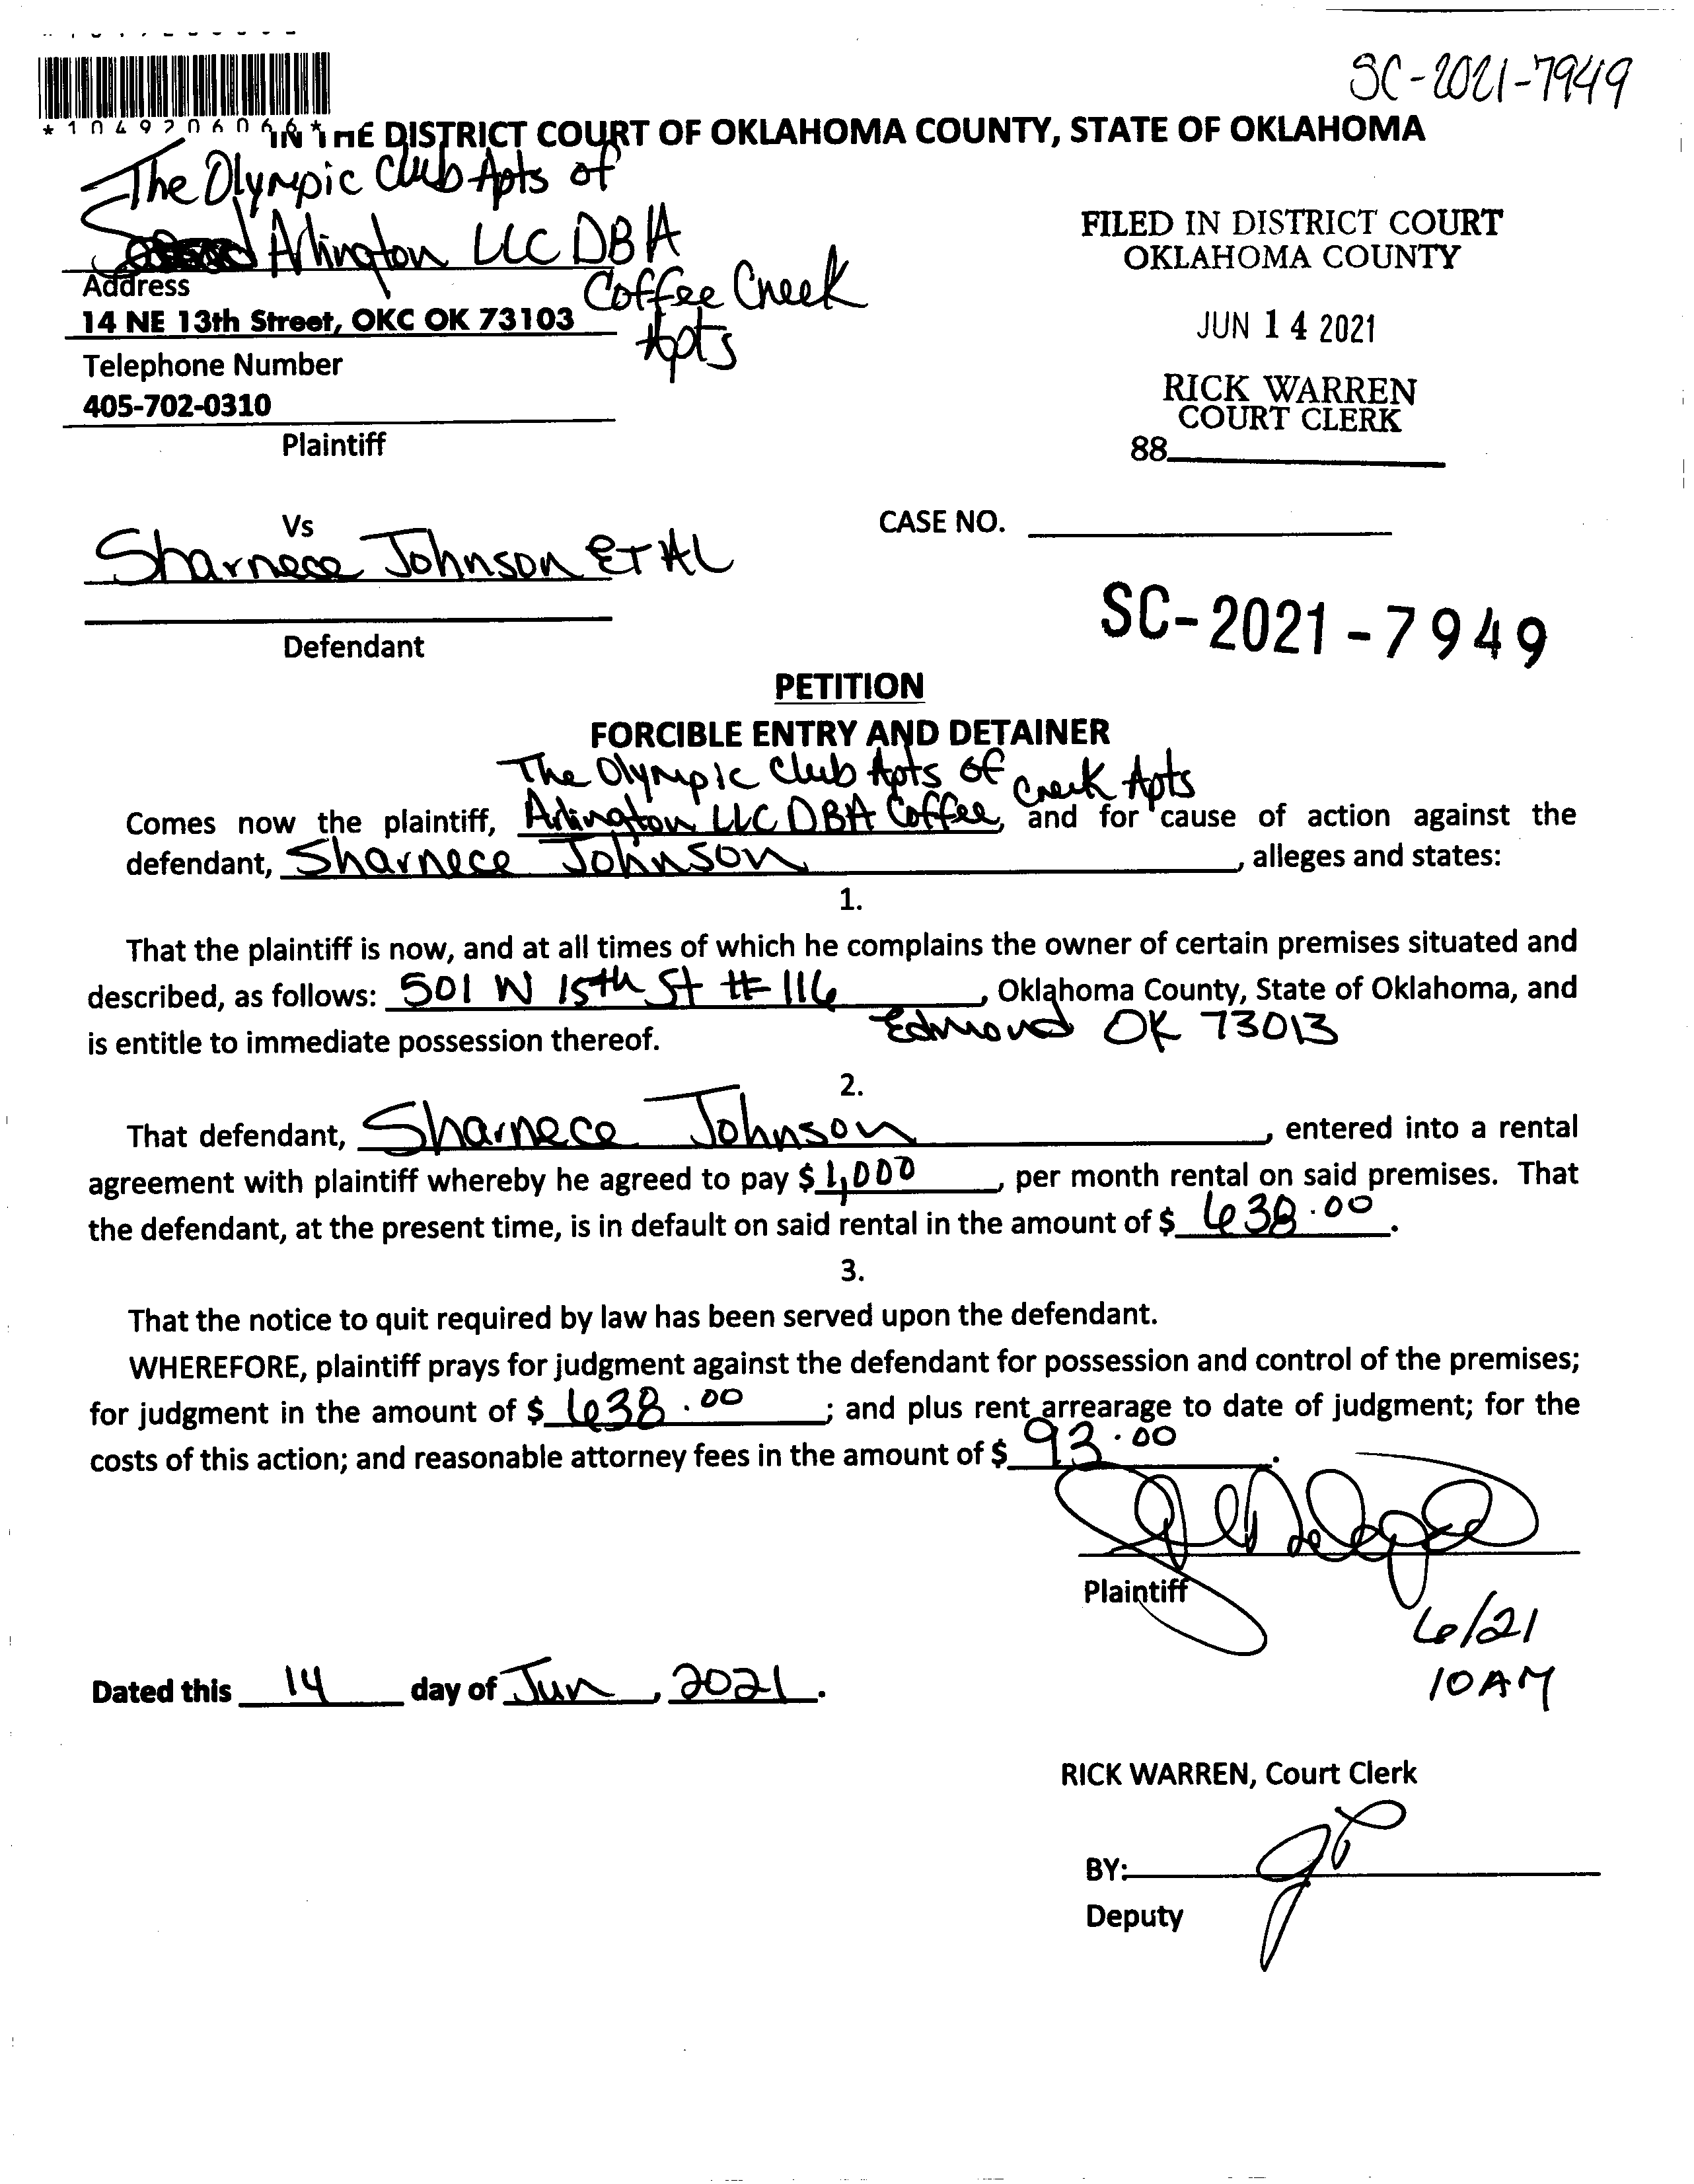 SC-2021-7949
*1049206066*
IN THE DISTRICT COURT OF OKLAHOMA COUNTY, STATE OF OKLAHOMA
The Olympic Club Apts of
Arlington LLC DBA
Coffee Creek
Apts
Address
14 NE 13th Street, OKC OK 73103
Telephone Number
405-702-0310
Plaintiff
FILED IN DISTRICT COURT
OKLAHOMA COUNTY
JUN 14 2021
RICK WARREN
COURT CLERK
88
Vs
CASE NO.
Sharnece Johnson ET AL
Defendant
SC-2021-7949
PETITION
FORCIBLE ENTRY AND DETAINER
The Olympic Club Apts of Creek Apts
Comes now the plaintiff, Arlington LLC DBA Coffee, and for cause of action against the
defendant, Sharnece Johnson, alleges and states:
1.
That the plaintiff is now, and at all times of which he complains the owner of certain premises situated and
described, as follows: 501 W 15th St # 116, Oklahoma County, State of Oklahoma, and
Edmond OK 73013
is entitle to immediate possession thereof.
2.
That defendant, Sharnece Johnson, entered into a rental
agreement with plaintiff whereby he agreed to pay $ 1,000, per month rental on said premises. That
the defendant, at the present time, is in default on said rental in the amount of $ 638.00.
3.
That the notice to quit required by law has been served upon the defendant.
WHEREFORE, plaintiff prays for judgment against the defendant for possession and control of the premises;
for judgment in the amount of $ 638.00; and plus rent arrearage to date of judgment; for the
costs of this action; and reasonable attorney fees in the amount of $ 93.00.
Plaintiff
6/21
10AM
Dated this 14 day of Jun, 2021.
RICK WARREN, Court Clerk
BY:
Deputy